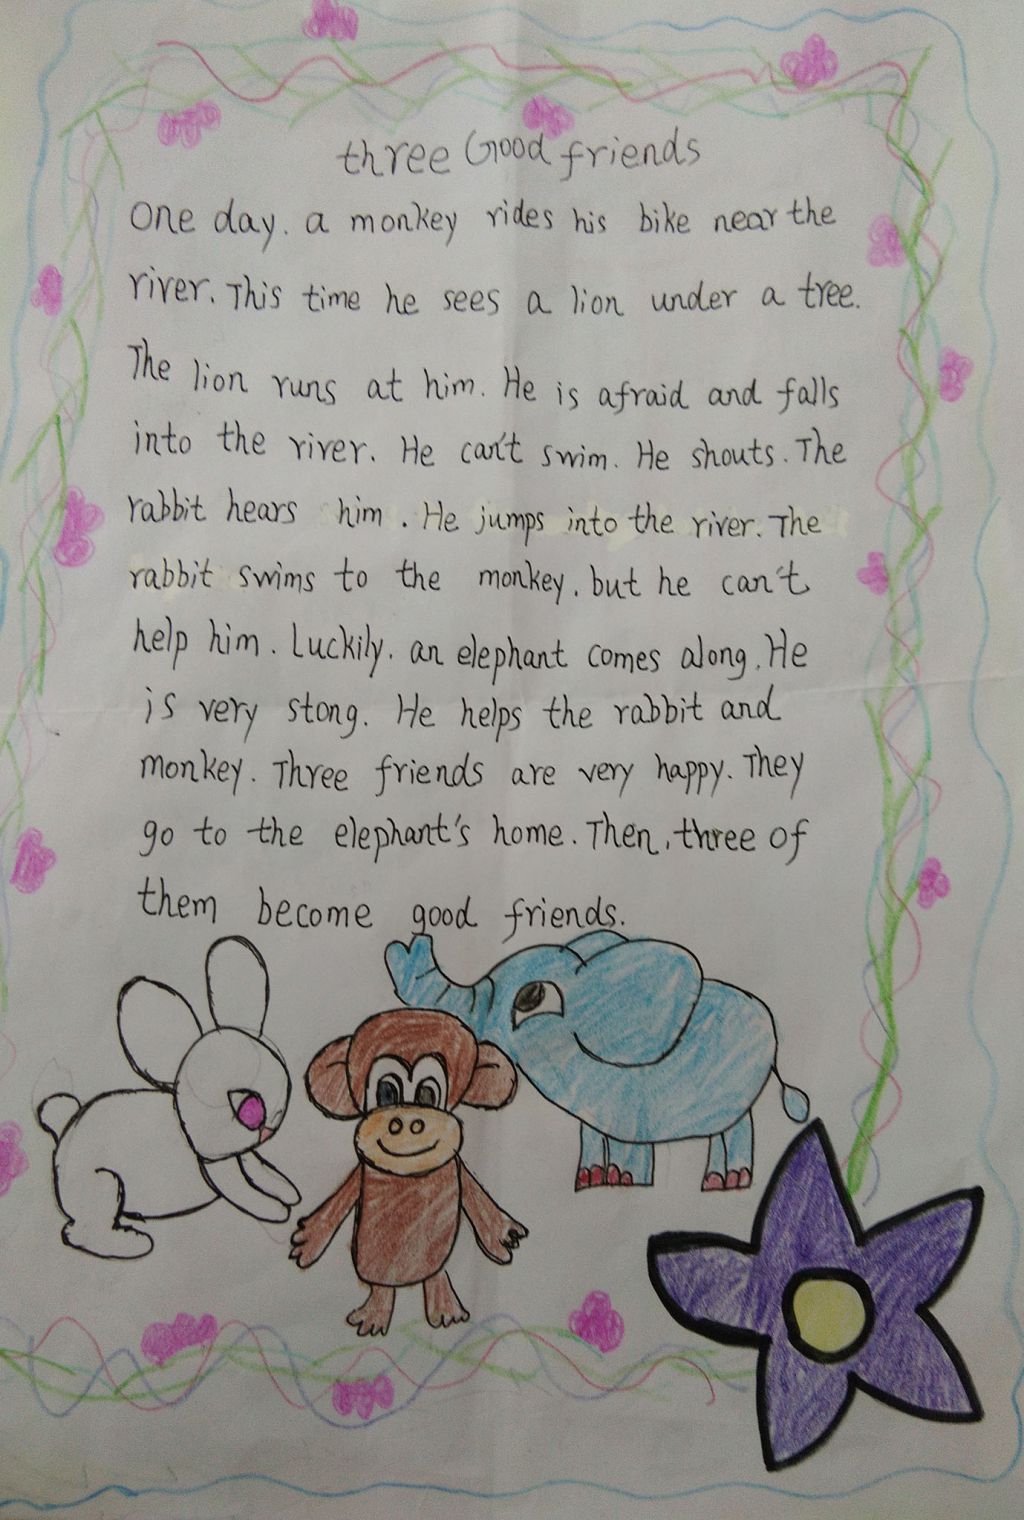 three Good friends
One day. a monkey rides his bike near the
river. This time he sees a lion under a tree.
The lion runs at him. He is afraid and falls
into the river. He can't swim. He shouts. The
rabbit hears him. He jumps into the river. The
rabbit swims to the monkey, but he can't
help him. Luckily. an elephant comes along. He
is very stong. He helps the rabbit and
monkey. Three friends are very happy. They
go to the elephant's home. Then, three of
them become good friends.